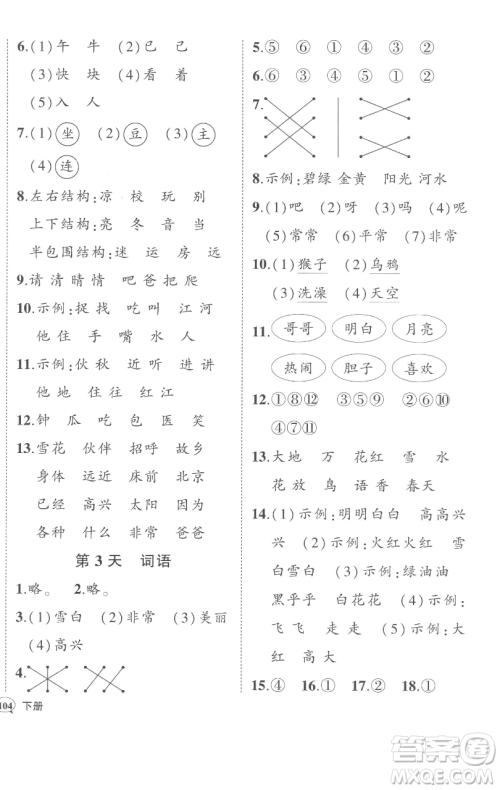 6.(1)午　牛　(2)已　己
(3)快　块　(4)看　着
(5)入　人
7.(1)坐　(2)豆　(3)主
(4)连
8.左右结构:凉　校　玩　别
上下结构:亮　冬　音　当
半包围结构:迷　运　房　远
9.请 清 晴 情　吧 爸 把 爬
10.示例:捉 找　吃 叫　江 河
他 住　手　嘴　水　人
11.示例:伙 秋　近 听　进 过
他　地　住　往　红　江
12.钟　瓜　吃　包　医　笑
13.雪花　伙伴　招呼　故乡
身体　远近　前后　北京
已经　高兴　太阳　因为
各种　什么　非常　爸爸
第 3 天　词语
1.略。　2.略。
3.(1)雪白　(2)非常　(3)美丽
(4)高兴
4.
104　下册
5.⑤　⑥　①　④　③　②
6.⑥　②　①　③　④　⑤
7.
8.示例:碧绿 金黄　阳光 河水
9.(1)吧　(2)呀　(3)吗　(4)呢
(5)常常　(6)平常　(7)非常
10.(1)猴子　(2)乌鸦
(3)洗澡　(4)天空
11.哥哥　明白　月亮
热闹　胆子　喜欢
12.①⑧⑫　③④⑤　②⑥⑩
⑦⑨⑪
13.大地　万　花红　雪　水
花 放　鸟　语 香　春天
14.(1)示例:明明白白　高高兴
兴　(2)示例:火红火红　雪
白雪白　(3)示例:绿油油
黑乎乎　白花花　(4)示例:
飞　飞　走　走　(5)示例:大
红　高 大
15.④　16.①　17.②　18.①
答案圈
MXQE.COM